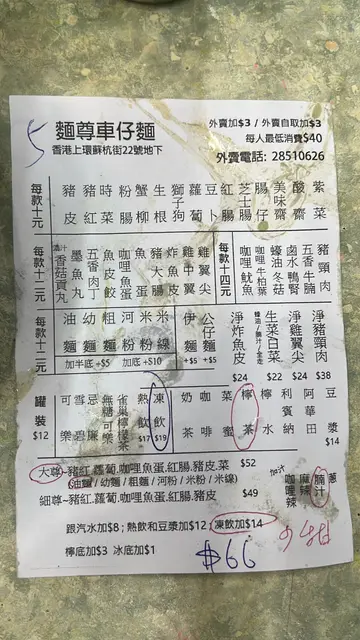 5
麵尊車仔麵
香港上環蘇杭街22號地下
外賣加$3 / 外賣自取加$3
每人最低消費$40
外賣電話: 28510626
每款十元
豬皮
豬紅
時菜
粉腸
蟹柳
生根
獅子狗
蘿蔔
豆卜
紅腸
芝士腸
腸仔
美味齋
酸齋
紫菜
每款十二元
香菇貢丸
墨魚丸
五香肉丁
魚皮餃
咖哩魚蛋
魚蛋
豬大腸
炸魚皮
雞中翼
雞翼尖
每款十四元
咖哩魷魚
咖哩牛柏葉
蠔油冬菇
鹵水鴨腎
五香牛腩
豬頸肉
每款十二元
油麵
幼麵
粗麵
河粉
米粉
米線
加半底+$5
加底+$10
伊麵
公仔麵
+$5
+$5
淨炸魚皮
$24
生菜
白菜
$22
淨雞翼尖
$24
淨豬頸肉
$38
罐裝
$12
可樂
雪碧
忌廉
無糖可樂
雀巢檸檬茶
熱飲
$17
凍飲
$19
奶茶
咖啡
菜蜜
檸茶
檸水
利賓納
阿華田
豆漿
$14
大尊-豬紅.蘿蔔.咖哩魚蛋.紅腸.豬皮.菜 $52
(油麵/幼麵/粗麵/河粉/米粉/米線)
細尊-豬紅.蘿蔔.咖哩魚蛋.紅腸.豬皮 $49
加汁
咖哩辣
麻辣
腩汁
蔥
跟汽水加$8 ; 熱飲和豆漿加$12 ; 凍飲加$14
檸底加$3 冰底加$1
$66